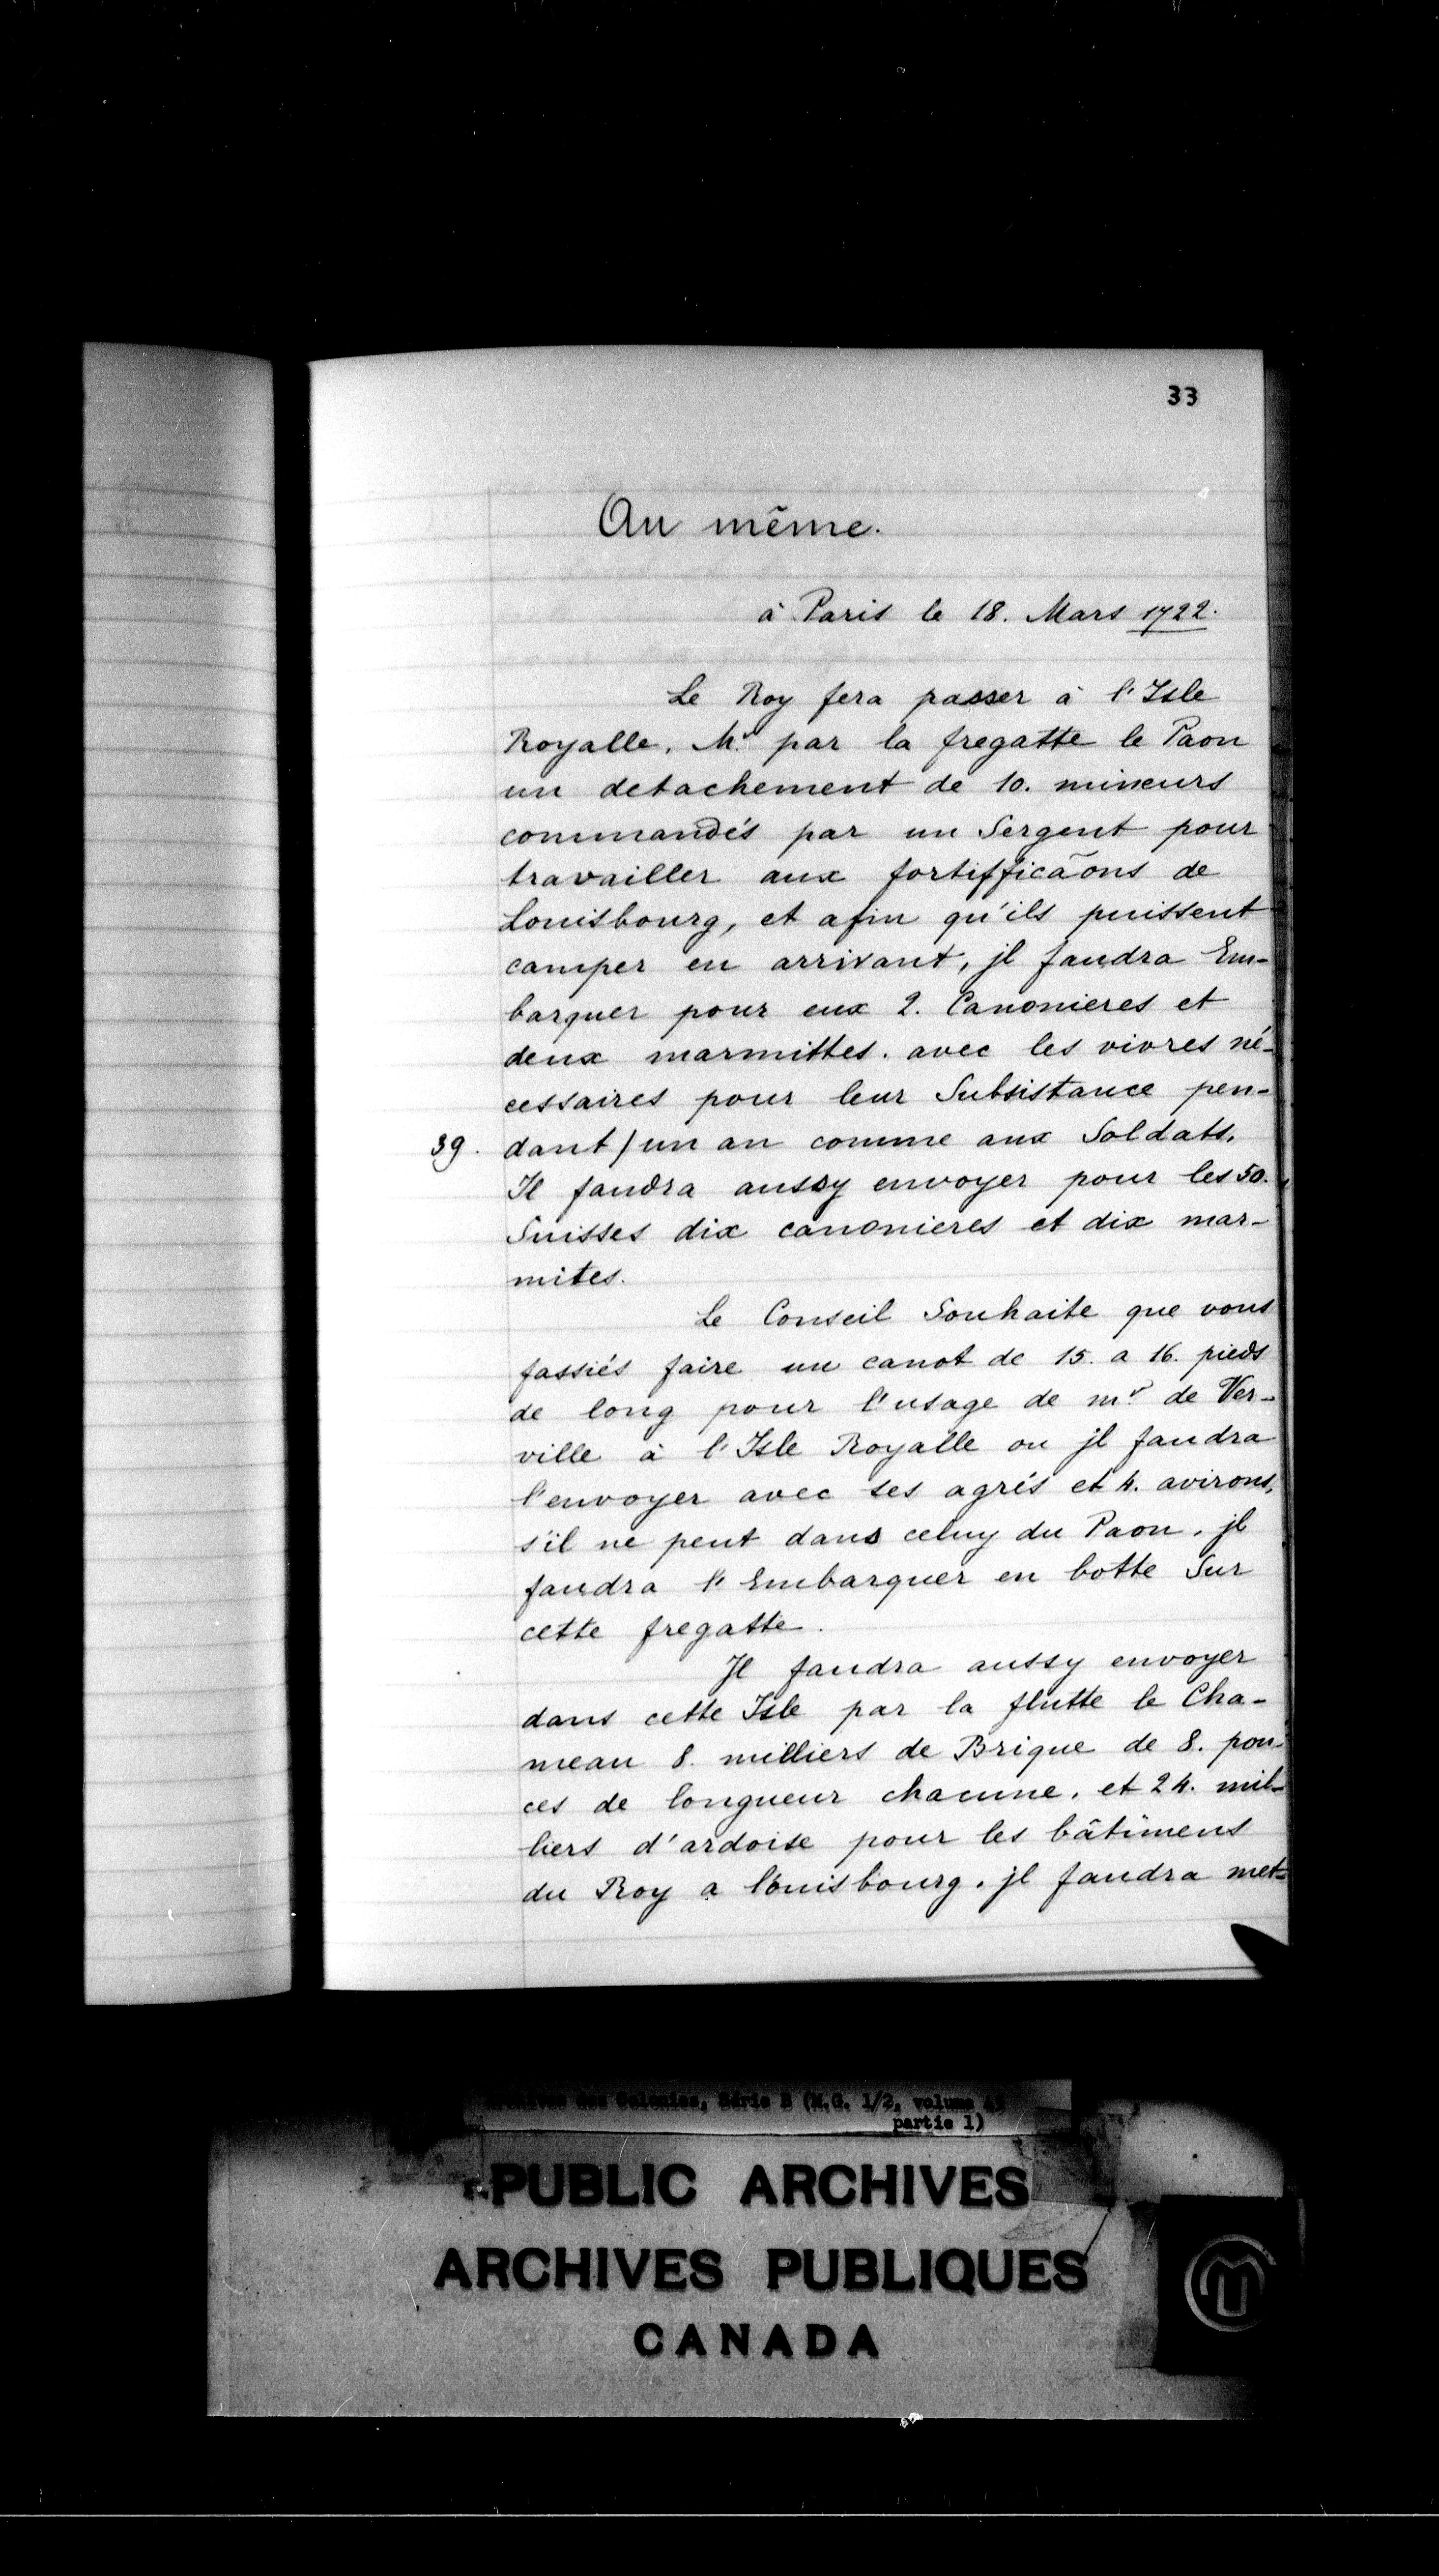 33
Au même.
à Paris le 18. Mars 1722.
Le Roy fera passer à l'Isle
Royalle, Mr. par la fregatte le Paon
un detachement de 10. mineurs
commandés par un Sergent pour
travailler aux fortifficãons de
Louisbourg, et afin qu'ils puissent
camper en arrivant, jl faudra Em-
barquer pour eux 2. Canonieres et
deux marmittes. avec les vivres né-
cessaires pour leur Subsistance pen-
39. dant/un an comme aux Soldats.
Il faudra aussy envoyer pour les 50.
Suisses dix canonieres et dix mar-
mites.
Le Conseil Souhaite que vous
fassiés faire un canot de 15. a 16. pieds
de long pour l'usage de mr. de Ver-
ville à l'Isle Royalle ou jl faudra
l'envoyer avec ses agrés et 4. avirons,
s'il ne peut dans celuy du Paon, jl
faudra l'Embarquer en botte Sur
cette fregatte.
Il faudra aussy envoyer
dans cette Isle par la flutte le Cha-
meau 8. milliers de Brique de 8. pou-
ces de longueur chacune, et 24. mil-
liers d'ardoise pour les bâtimens
du Roy a louisbourg. jl faudra met-
des Colonies, Série B (M.G. 1/2, volume
partie 1)
PUBLIC ARCHIVES
ARCHIVES PUBLIQUES
CANADA